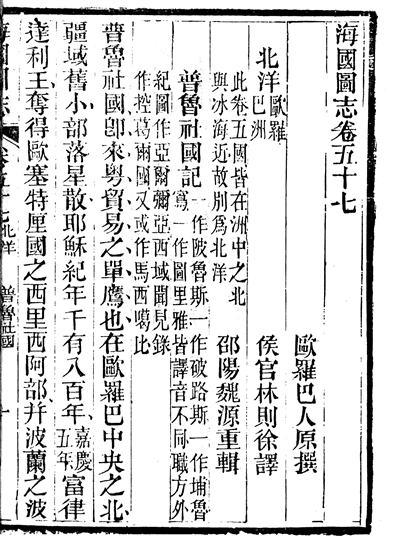 海國圖志卷五十七
歐羅巴人原撰
侯官林則徐譯
北洋歐羅
巴洲
邵陽魏源重輯
此卷五國皆在洲中之北
與冰海近故別為北洋
普魯社國記一作陂魯斯一作破路斯一作埔魯
寫一作圖里雅皆譯音不同職方外
紀圖作亞爾彌亞西域聞見錄
作控葛爾國又或作馬西噶比
普魯社國卽來粵貿易之單鷹也在歐羅巴中央之北
疆域舊小部落星散耶穌紀年千有八百年、嘉慶
五年富律
達利王奪得歐塞特厘國之西里西阿部、幷波蘭之波
北洋
普魯社國
一